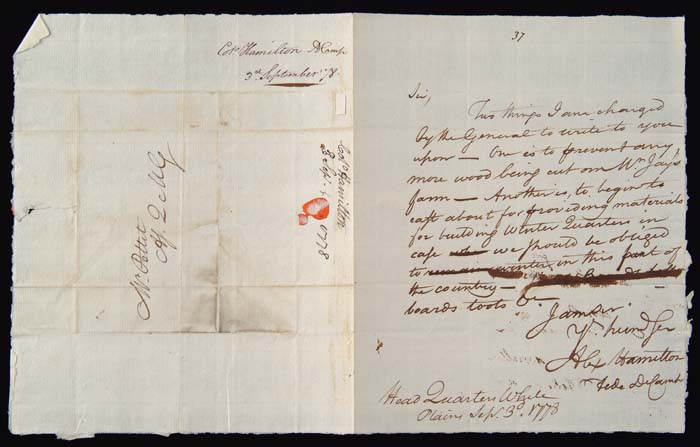 Colo. Hamilton DCamp
3rd September 78.
Mr. Pettit
A. Q M G
Colo. Hamilton
3 Sept. 1778
37
Sir,
Two things I am charged
by the General to write to you
upon — One is to prevent any
more wood being cut on Mr. Jay's
farm — Another is, to begin to
cast about for providing materials
for building Winter Quarters in
case we should be obliged
to winter in this part of
the country —
boards too to be
I am Sir
Yr. hum Ser
Alex Hamilton
Aide De Camp
Head Quarters White
Plains Sept. 3d. 1778